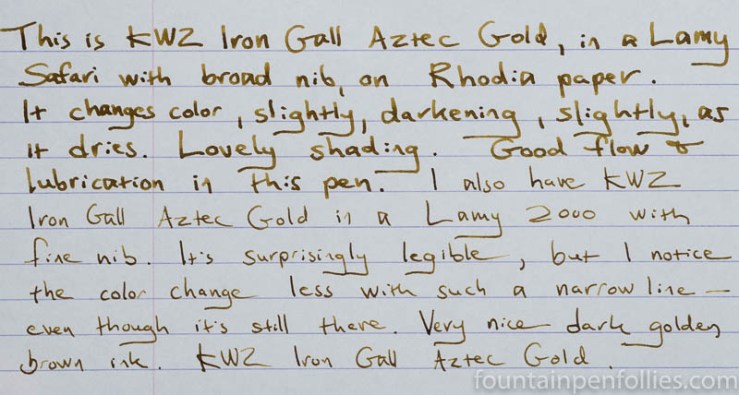 This is KWZ Iron Gall Aztec Gold, in a Lamy
Safari with broad nib, on Rhodia paper.
It changes color, slightly, darkening, slightly, as
it dries. Lovely shading. Good flow &
lubrication in this pen. I also have KWZ
Iron Gall Aztec Gold in a Lamy 2000 with
fine nib. It's surprisingly legible, but I notice
the color change less with such a narrow line —
even though it's still there. Very nice dark golden
brown ink. KWZ Iron Gall Aztec Gold.
fountainpenfollies.com